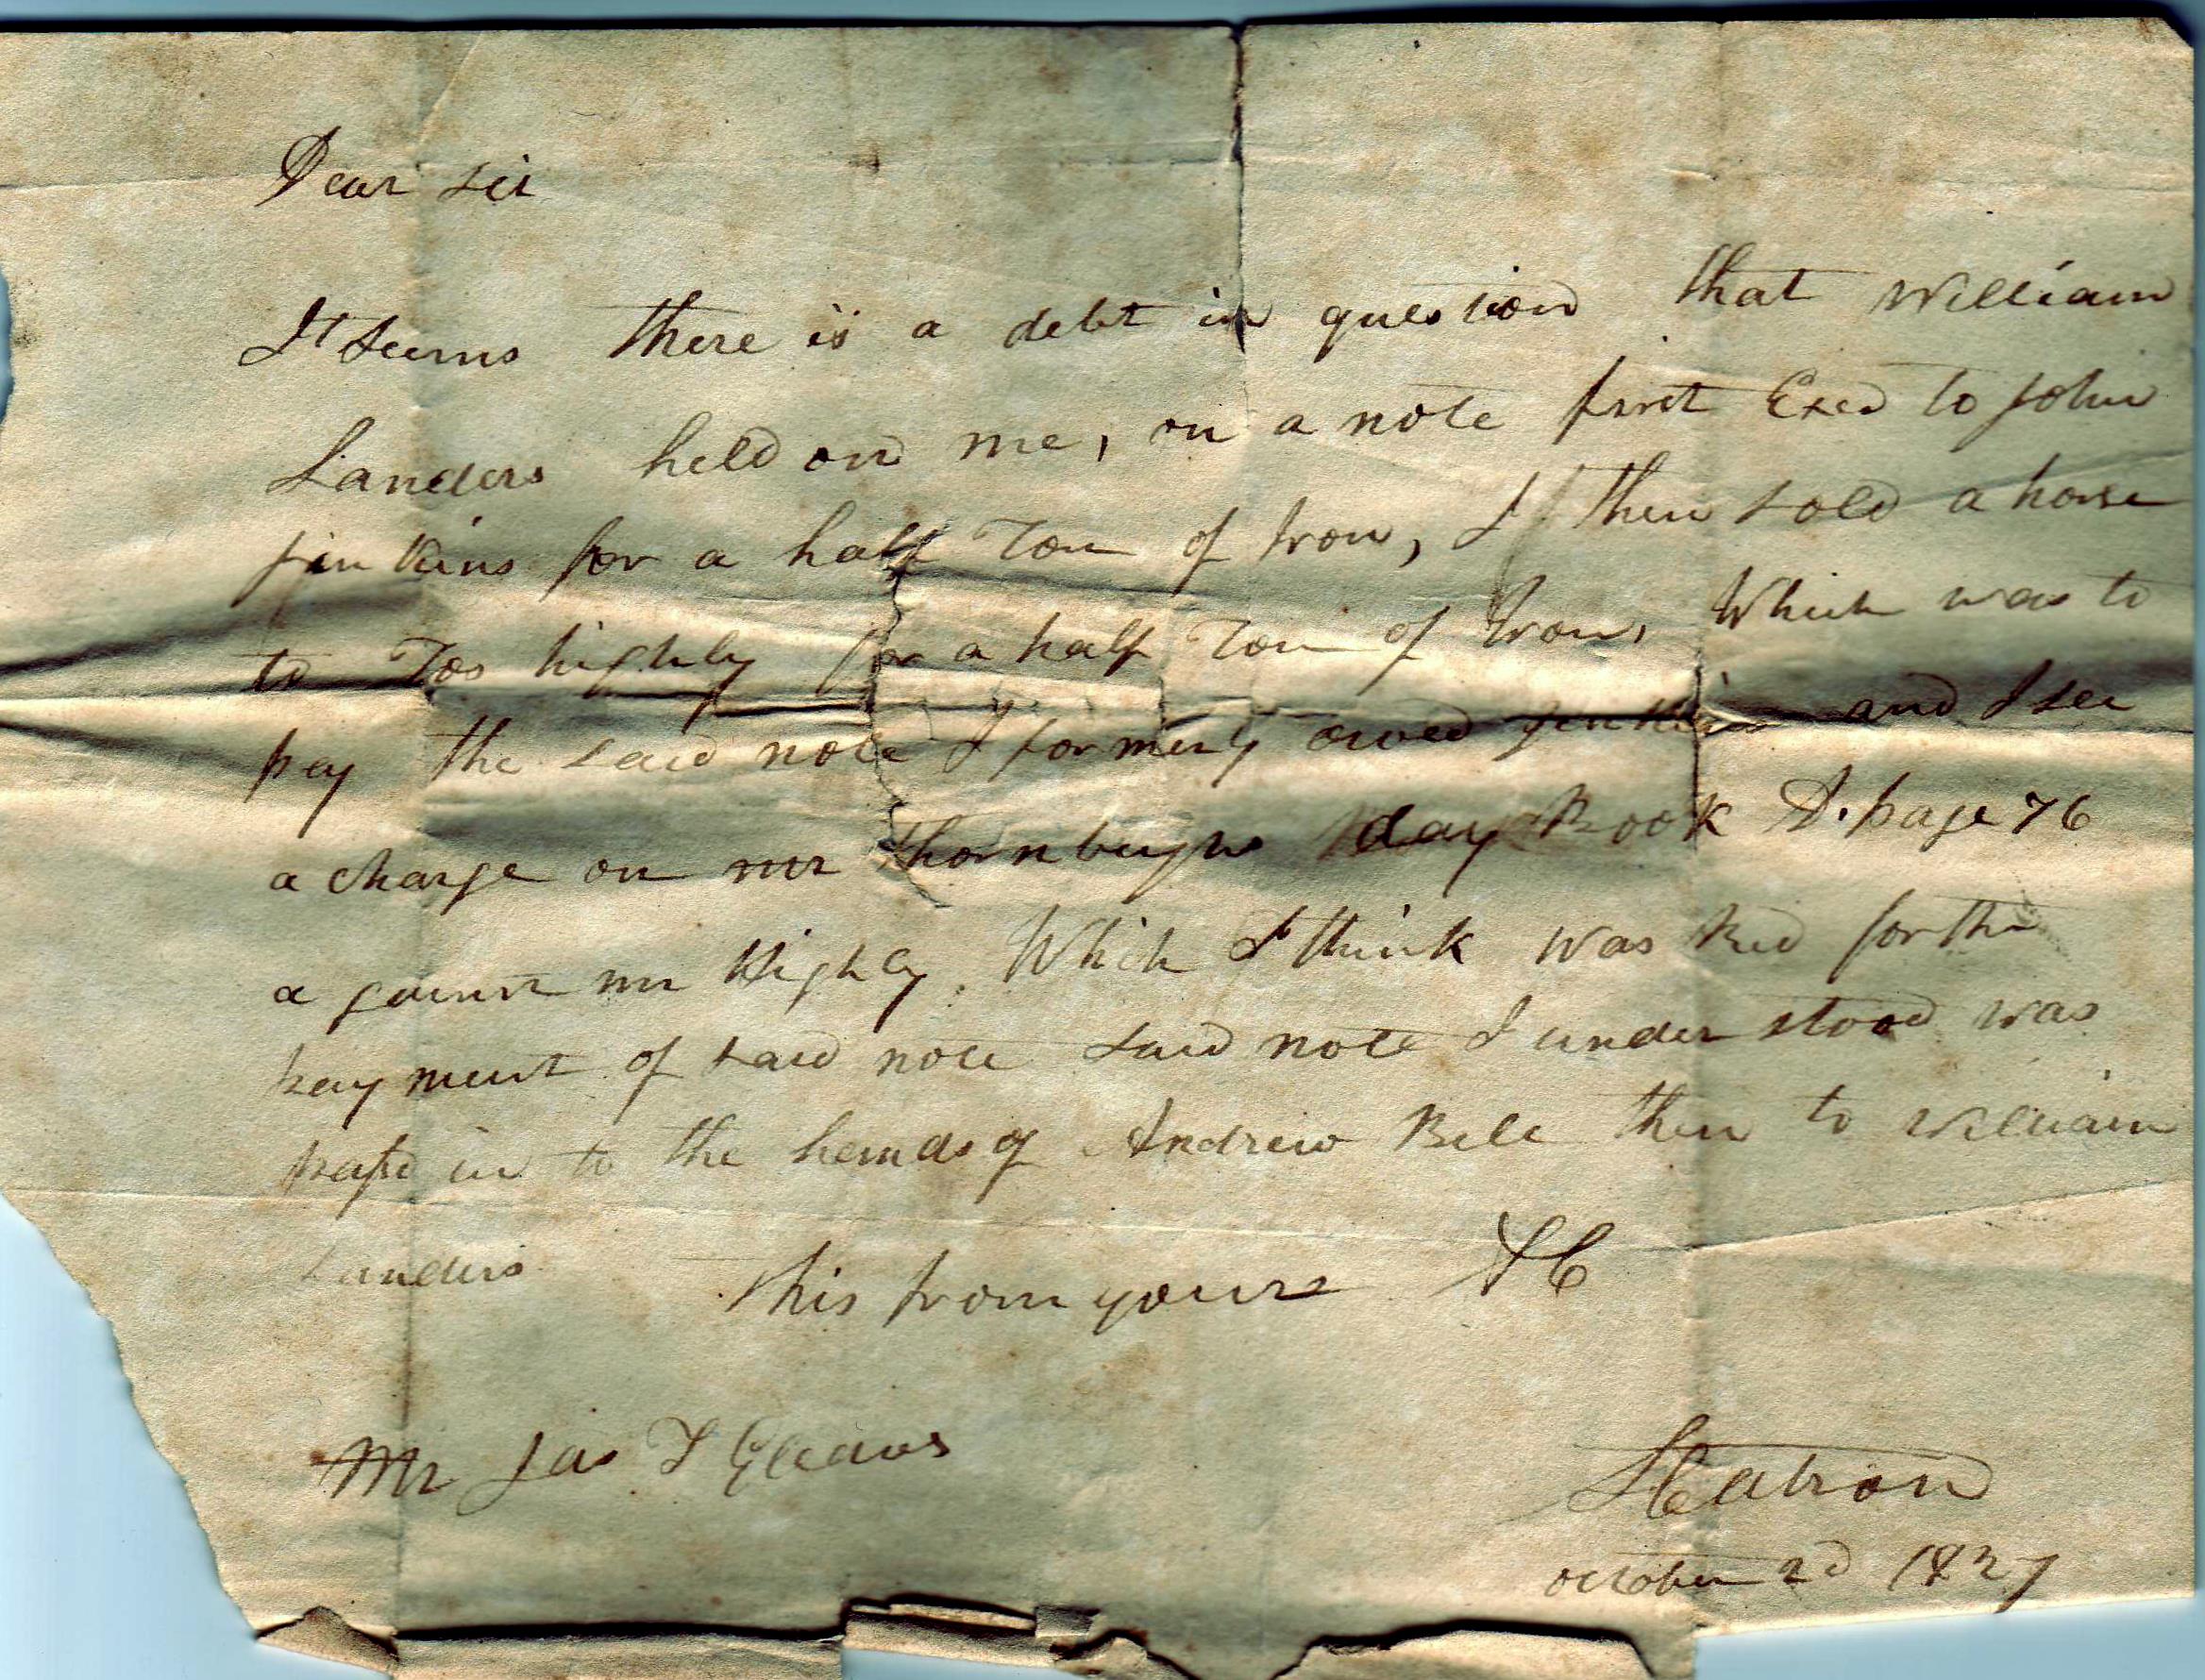 Dear Sir
It Seems there is a debt in question that William
Landers held on me, on a note first Exed to John
Jinkins for a half Ton of Iron, I then sold a horse
to Jos highly for a half Ton of Iron, Which was to
pay the said note I formerly owed Jinkins and I see
a charge on mr thornbughs day Book A. page 76
a gainst mr Highly. Which I think was Red for the
payment of said note said note I under stood was
past in to the hands of Andrew Bell then to William
Landers this from yours
Mr Jas T
october 2d 1827